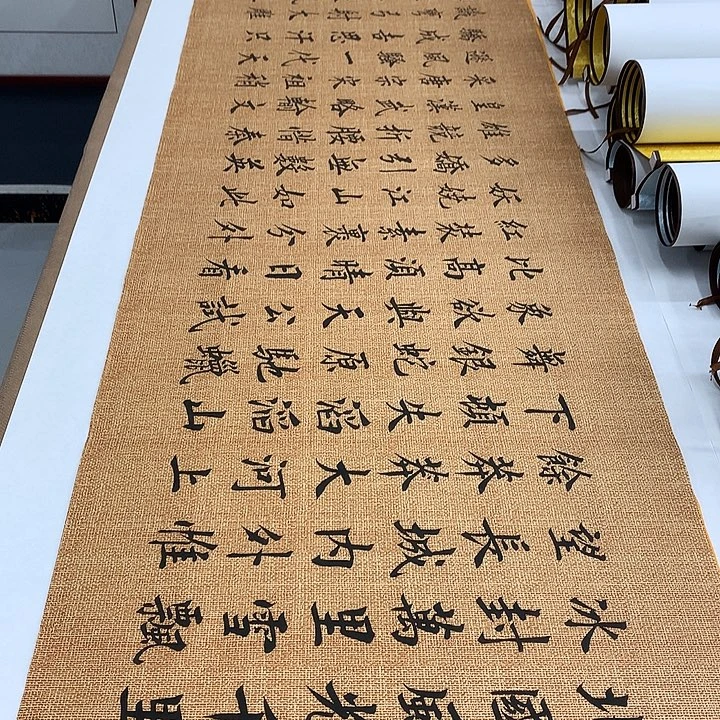 北國風光千里
冰封萬里雪飄
望長城内外惟
餘莽莽大河上
下頓失滔滔山
舞銀蛇原馳蠟
象欲與天公試
比高須晴日看
紅裝素裹分外
妖嬈江山如此
多嬌引無數英
雄競折腰惜秦
皇漢武略輸文
采唐宗宋祖稍
遜風騷一代天
驕成吉思汗只
識彎弓射大雕